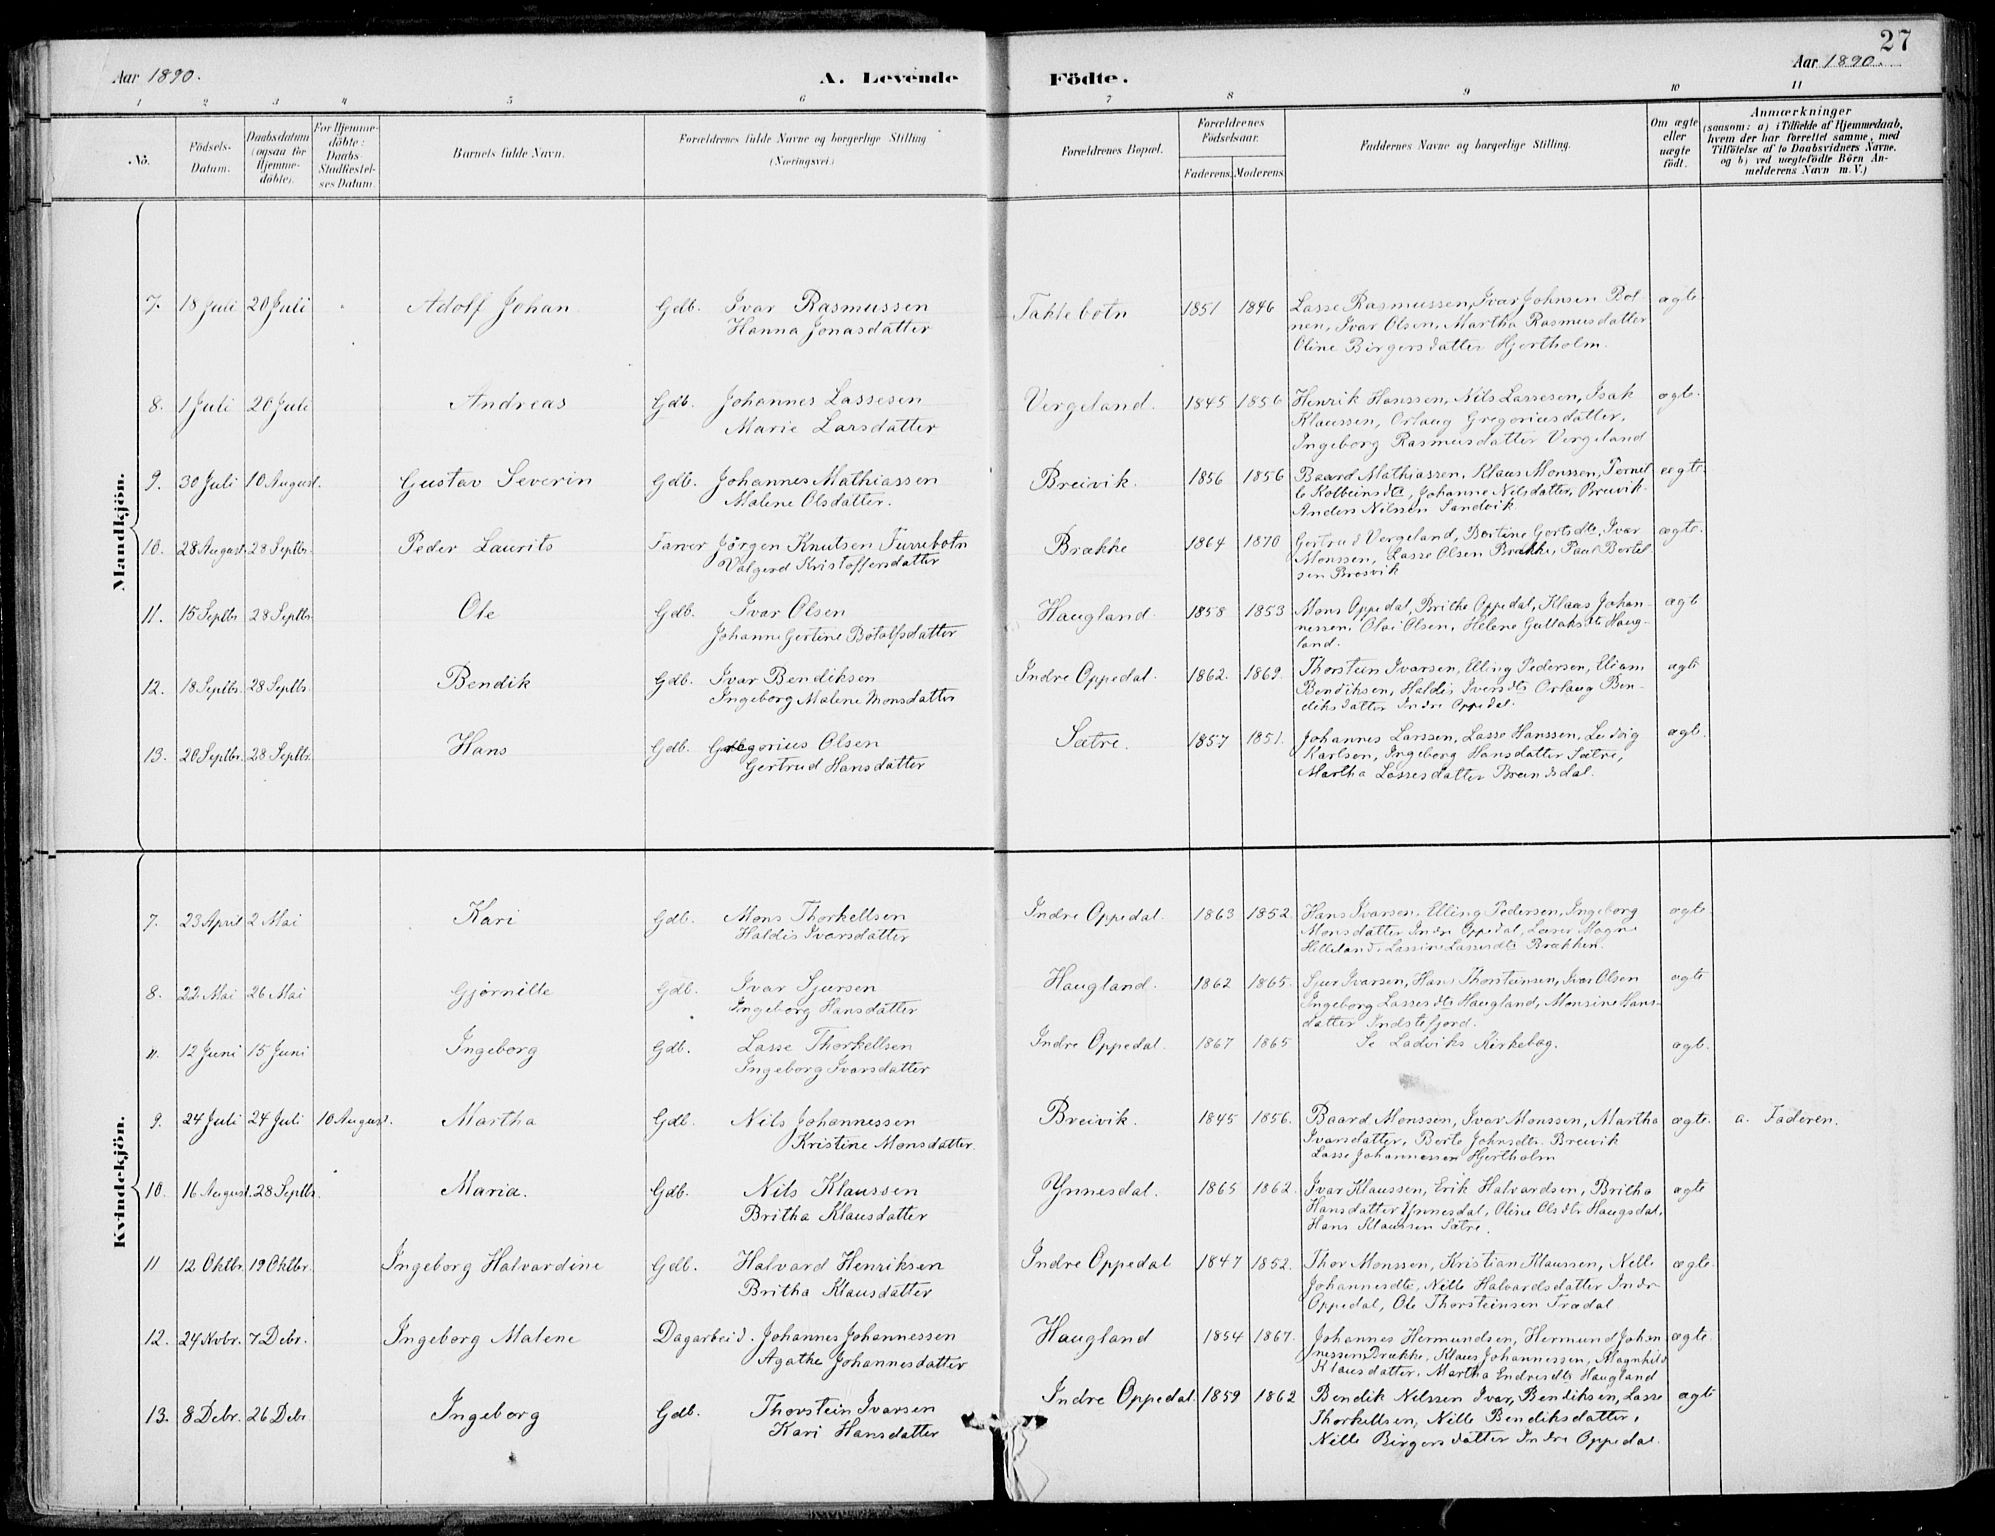 27
Aar 1890.
A. Levende
Födte.
Aar 1890.
1 2 3 4 5 6 7 8 9 10 11
No.
Födsels-
Datum.
Daabsdatum
(ogsaa for
Hjemme-
döbte).
For Hjemme-
döbte:
Daabs-
Stadfæstel-
ses Datum.
Barnets fulde Navn.
Forældrenes fulde Navne og borgerlige Stilling
(Næringsvei.)
Forældrenes Bopæl.
Forældrenes
Födselsaar.
Faderens. Moderens.
Faddernes Navne og borgerlige Stilling.
Om ægte
eller
uægte
födt.
Anmærkninger
(saasom: a) i Tilfælde af Hjemmedaab,
hvem der har forrettet samme, med
Tilföielse af to Daabsvidners Navne.
og b) ved uægtefödte Börn An-
melderens Navn m. V.)
Mandkjön.
7. 18 Juli 20 Juli Adolf Johan Gdb. Ivar Rasmussen Taklebotn 1851 1846 Lasse Rasmussen, Ivar Johnsen Bot- ægte
Hanna Jonasdatter nen, Ivar Olsen, Martha Rasmusdatter
Oline Birgersdatter Hjertholm.
8. 1 Juli 20 Juli Andreas Gdb. Johannes Lassesen Vergeland. 1845 1856 Henrik Hanssen, Nils Lassesen, Isak ægte.
Marie Larsdatter Klaussen, Orlaug Gregoriusdatter,
Ingeborg Rasmusdatter Vergeland
9. 30 Juli 10 August. Gustav Severin Gdb. Johannes Mathiassen Breivik. 1856 1856 Baard Mathiassen, Klaus Monssen, Pernil- ægte
Malene Olsdatter. le Kolbeinsdtr, Johanne Nilsdatter, Breivik
Anders Nilsen Sandvik
10. 28 August. 28 Septbr. Peder Laurits Farver Jörgen Knutsen Furrebotn Brække 1864 1870 Gertrud Vergeland, Bertine Gertsdtr, Ivar ægte.
Valgerd Kristoffersdatter Monssen, Lasse Olsen Brække, Paul Bertel
sen Brosvik
11. 15 Septbr 28 Septbr. Ole Gdb. Ivar Olsen Haugland. 1858 1853 Mons Oppedal, Brithe Oppedal, Klaus Johan- ægt
Johanne Gertine Botolfsdatter nessen, Olai Olsen, Helene Gullaksdtr Haug-
land.
12. 18 Septbr. 28 Septbr. Bendik Gdb. Ivar Bendiksen Indre Oppedal. 1862. 1869. Thorstein Ivarsen, Elling Pedersen, Eliam ægt
Ingeborg Malene Monsdatter Bendiksen, Haldis Iversdtr Orlaug Ben-
diksdatter Indre Oppedal.
13. 20 Septbr. 28 Septbr. Hans Gdb. Gregorius Olsen Sætre. 1857 1851. Johannes Larssen, Lasse Hanssen, Ludvig ægt.
Gertrud Hansdatter Karlsen, Ingeborg Hansdatter Sætre,
Martha Lassesdatter Breindsdal.
Kvindekjön.
7. 23 April 2 Mai Kari Gdb. Mons Thorkellsen Indre Oppedal. 1863 1852. Hans Ivarsen, Elling Pedersen, Ingeborg ægte
Haldis Ivarsdatter Monsdatter Indre Oppedal, Læser Mogne
Helleland, Lassine Lassesdtr Brækken.
8. 22 Mai 26 Mai Gjörnille Gdb. Ivar Sjursen Haugland. 1862 1865. Sjur Ivarsen, Hans Thorsteinsen, Ivar Olsen ægte
Ingeborg Hansdatter Ingeborg Lassesdtr Haugland, Monsine Hans-
datter Indstefjord.
11. 12 Juni 15 Juni Ingeborg Gdb. Lasse Thorkellsen Indre Oppedal. 1867 1865 Se Ladviks Kirkebog. ægt.
Ingeborg Ivarsdatter
9. 24 Juli 24 Juli 10 August. Martha Gdb. Nils Johannessen Breivik. 1845 1856. Baard Monssen, Ivar Monssen, Martha ægte. a. Faderen.
Kristine Monsdatter. Ivarsdatter, Berte Johnsdtr. Breivik
Lasse Johannessen Hjertholm
10. 16 August. 28 Septbr. Maria. Gdb. Nils Klaussen Ynnesdal. 1865 1862. Ivar Klaussen, Erik Halvardsen, Britha ægte
Britha Klausdatter Hansdatter Ynnesdal, Oline Olsdtr Haugsdal,
Hans Klaussen Sætre.
11 12 Oktbr. 19 Oktbr. Ingeborg Halvardine Gdb. Halvard Henriksen Indre Oppedal 1847 1852. Thor Monssen, Kristian Klaussen, Nille ægte.
Britha Klausdatter Johannesdtr, Nille Halvardsdatter Indr
Oppedal, Ole Thorsteinsen Trædal
12. 24 Novbr. 7 Debr. Ingeborg Malene Dagarbeid. Johannes Johannessen Haugland 1854 1867. Johannes Hermundsen, Hermund Johan ægte
Agathe Johannesdatter nessen, Brække, Klaus Johannessen, Magnhild
Klausdatter, Martha Endresdtr Haugland
13. 8 Debr. 26 Debr Ingeborg Gdb. Thorstein Ivarsen Indre Oppedal. 1859 1862 Bendik Nilssen Ivar Bendiksen, Lasse ægt
Kari Hansdatter Thorkellsen, Nille Bendiksdatter,
Nille Birgersdatter Indre Oppedal.